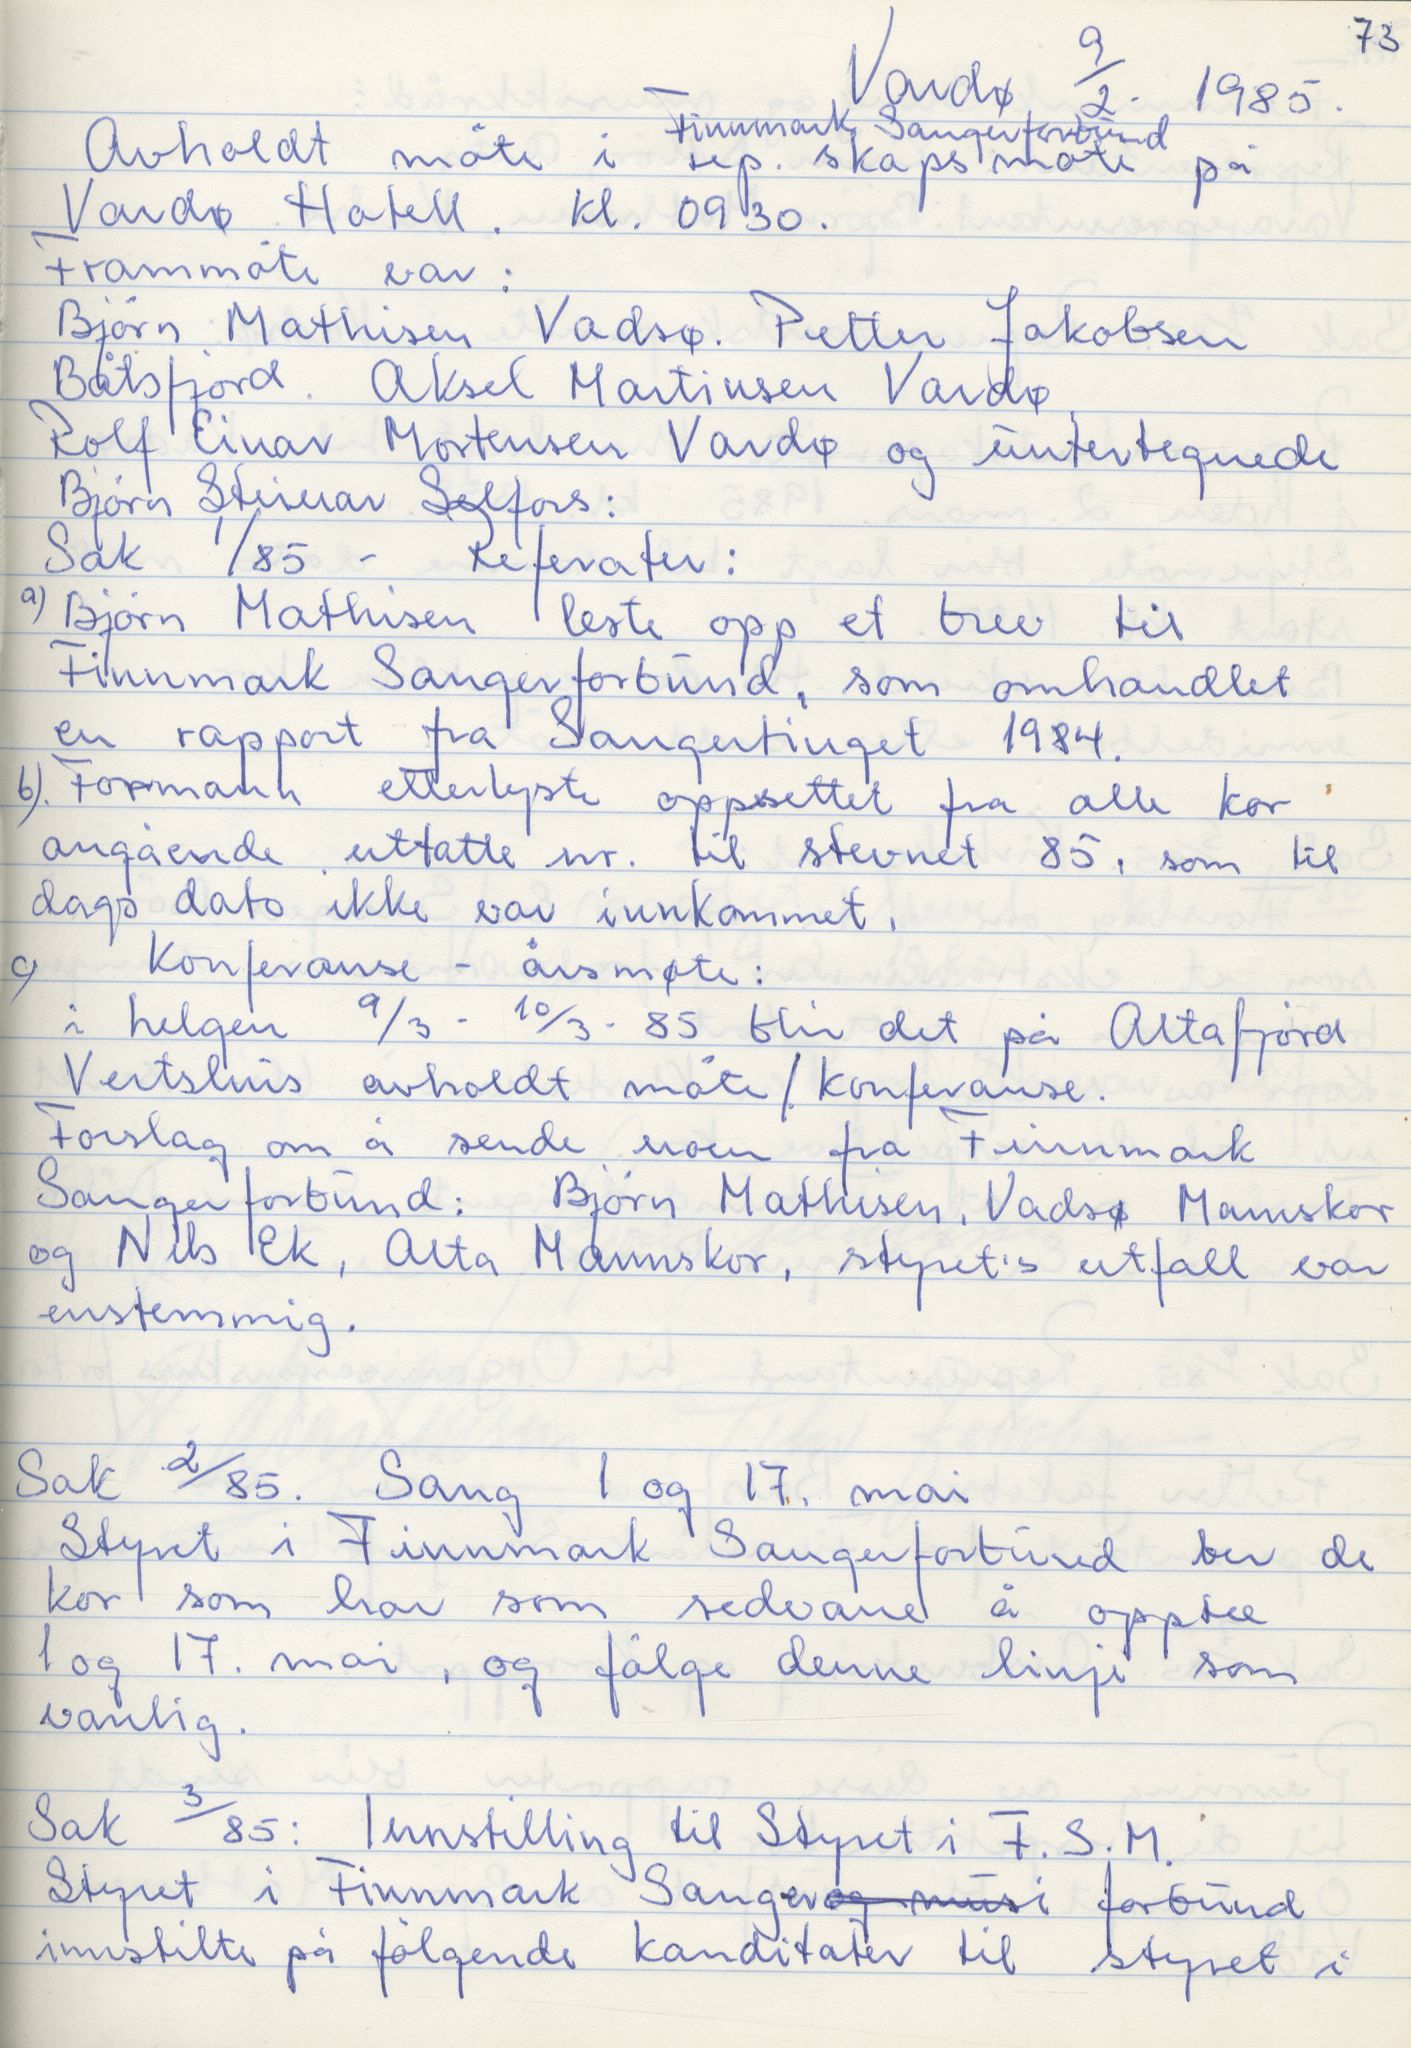 73
Vardø 9/2- 1985.
Finnmark Sangerforbund
Avholdt möte i rep. skapsmöte på
Vardø Hotell. kl. 0930.
Frammöte var:
Björn Mathisen Vadsø. Petter Jakobsen
Båtsfjord. Aksel Martinsen Vardø,
Rolf Einar Mortensen Vardø og üntertegnede
Björn Steinar Selfors:
Sak 1/85 - Referater:
a) Björn Mathisen leste opp et brev til
Finnmark Sangerforbünd, som omhandlet
en rapport fra Sangertinget 1984.
b). Formann etterlyste oppsettet fra alle kor
angående uttatte nr. til stevnet 85, som til
dags dato ikke var innkommet.
c) Konferanse - årsmøte:
i helgen 9/3 - 10/3 - 85 blir det på Altafjord
Vertshüs avholdt möte/konferanse.
Forslag om å sende noen fra Finnmark
Sangerforbünd: Björn Mathisen, Vadsø Mannskor
og Nils Ek, Alta Mannskor, styret's utfall var
enstemmig.
Sak 2/85. Sang 1 og 17. mai
Styret i Finnmark Sangerforbünd ber de
kor som har som sedvane å opptre
1 og 17. mai, og fölge denne linje som
vanlig.
Sak 3/85: Innstilling til Styret i F.S.M.
Styret i Finnmark Sangerog müsi forbünd
innstilte på fölgende kanditater til styret i